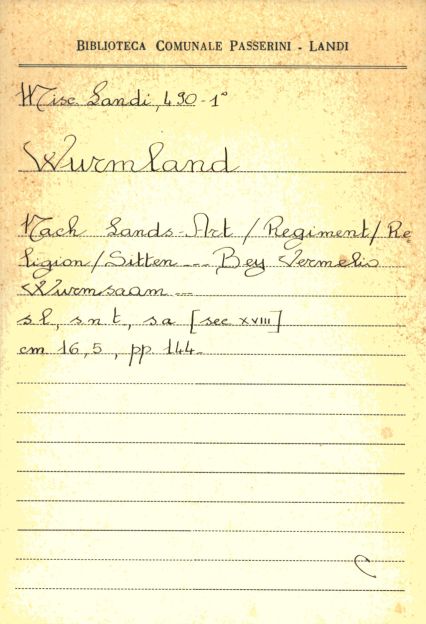 BIBLIOTECA COMUNALE PASSERINI - LANDI
Misc Landi, 490-1°
Wurmland
Nach Lands-Art / Regiment / Re
ligion / Sitten --- Bey Vermelio
Wurmsaam ---
s l, s n t, s a [sec XVIII]
cm 16,5, pp 144-
C